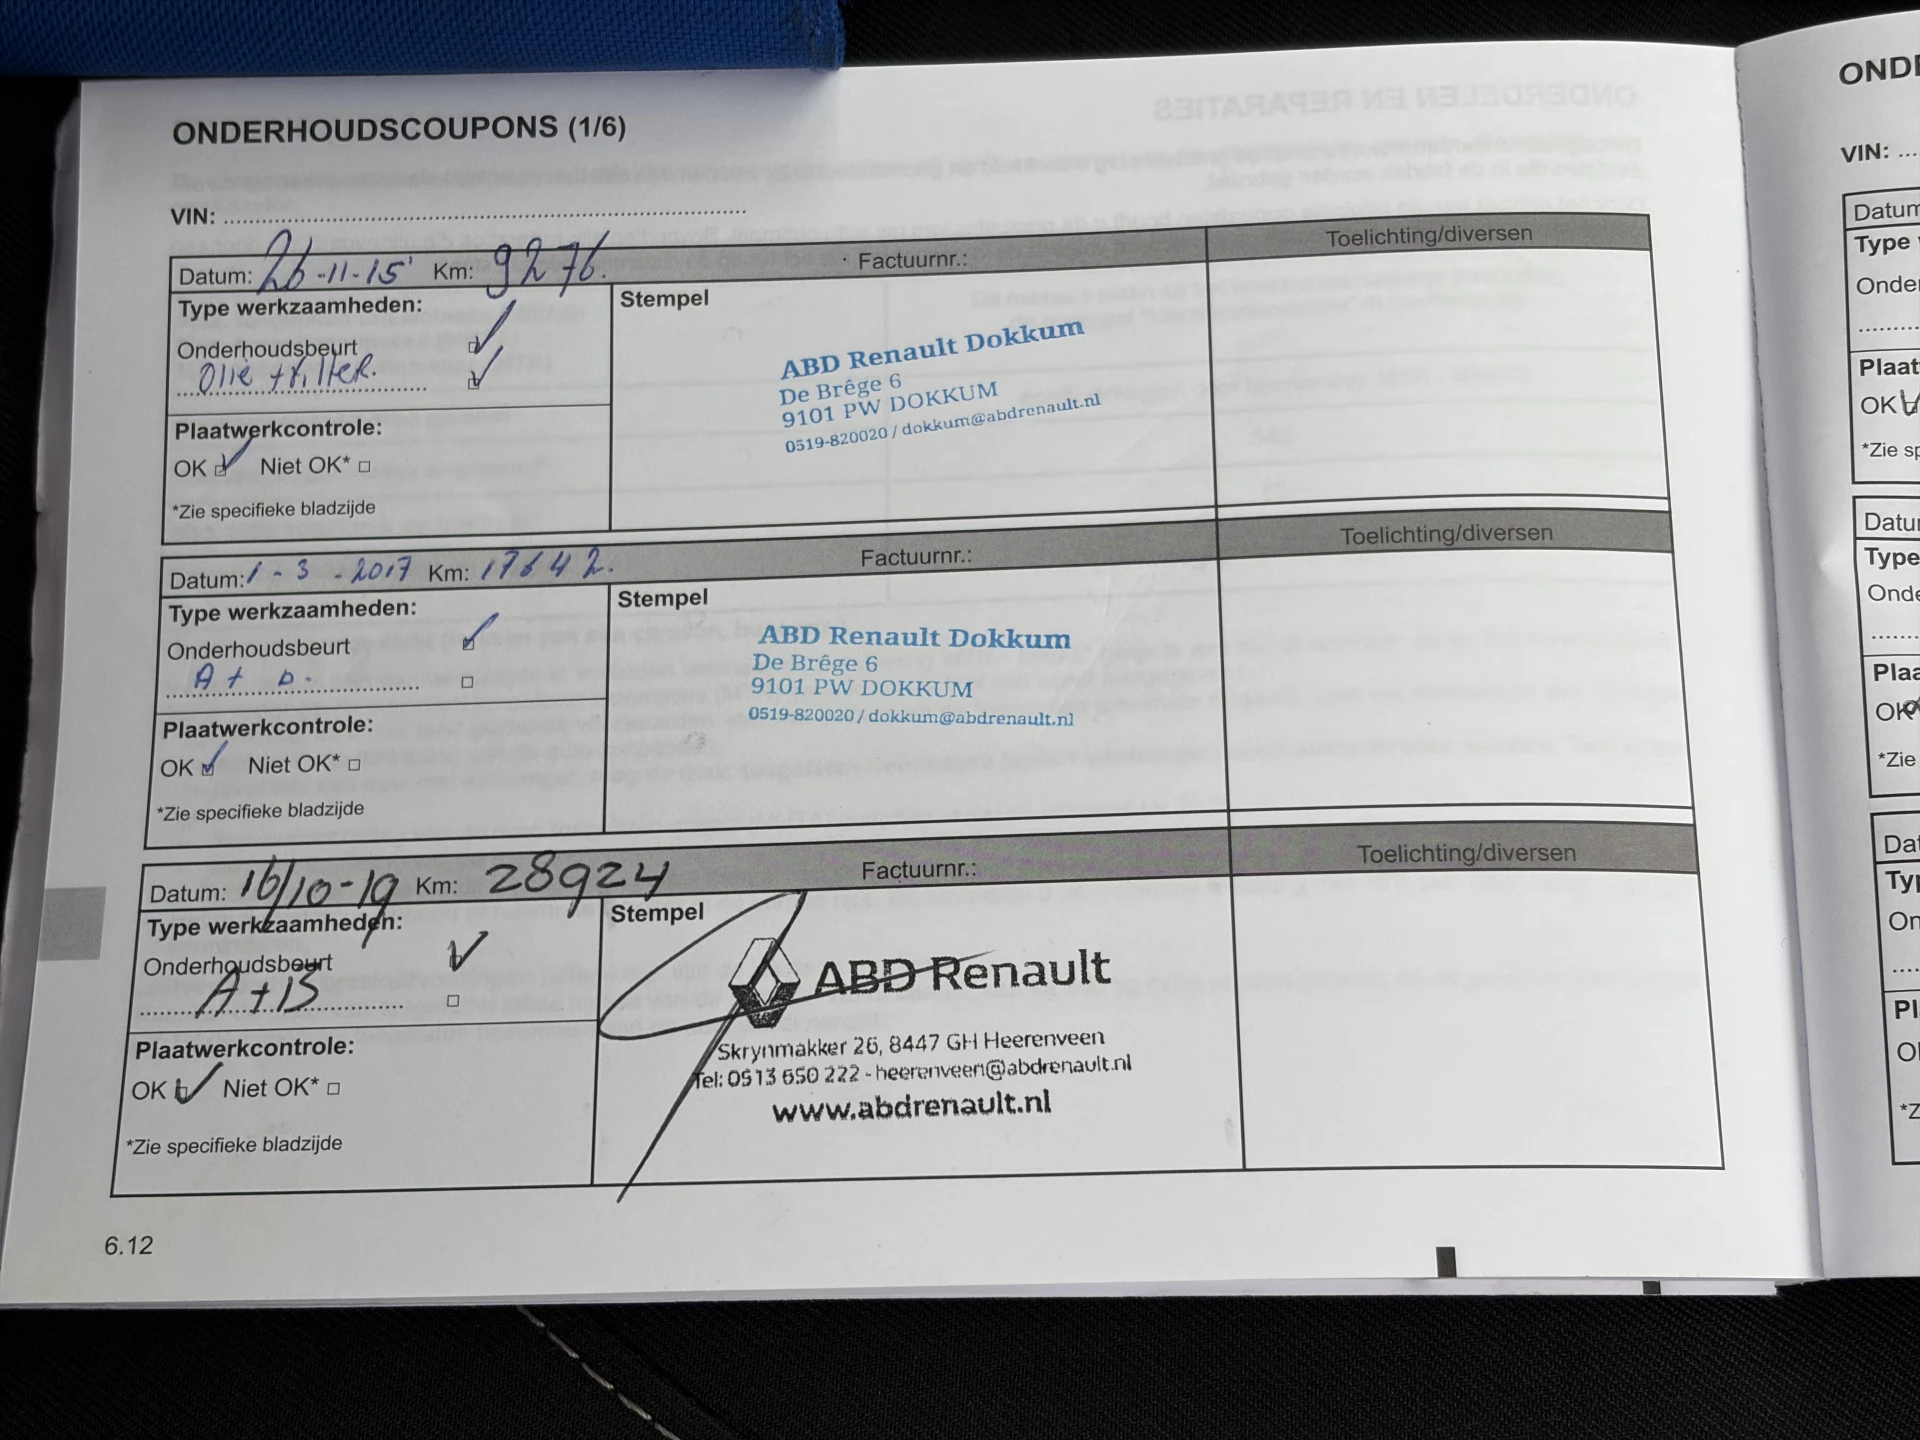 ONDERHOUDSCOUPONS (1/6)
VIN: ........................................
Datum: 26-11-15 Km: 9276. Factuurnr.: Toelichting/diversen
Type werkzaamheden:
Onderhoudsbeurt
Olie + Filter.
Plaatwerkcontrole:
OK Niet OK*
*Zie specifieke bladzijde
Stempel
ABD Renault Dokkum
De Brêge 6
9101 PW DOKKUM
0519-820020 / dokkum@abdrenault.nl
Datum: 1-3-2017 Km: 17642. Factuurnr.: Toelichting/diversen
Type werkzaamheden:
Onderhoudsbeurt
A +
Plaatwerkcontrole:
OK Niet OK*
*Zie specifieke bladzijde
Stempel
ABD Renault Dokkum
De Brêge 6
9101 PW DOKKUM
0519-820020 / dokkum@abdrenault.nl
Datum: 16/10-19 Km: 28924 Factuurnr.: Toelichting/diversen
Type werkzaamheden:
Onderhoudsbeurt
A + B
Plaatwerkcontrole:
OK Niet OK*
*Zie specifieke bladzijde
Stempel
ABD Renault
Skrynmakker 26, 8447 GH Heerenveen
Tel: 0513 650 222 - heerenveen@abdrenault.nl
www.abdrenault.nl
6.12
VIN: ....
OK
*Zie
OK
*Zie